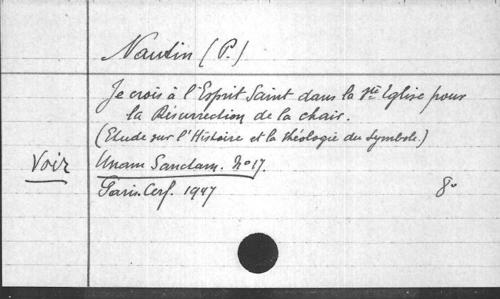 Nautin (P.)
Je crois à l'Esprit Saint dans la Ste Eglise pour
la Résurrection de la chair.
(Etude sur l'Histoire et la théologie du Symbole.)
Voir Unam Sanctam. No 17.
Paris. Cerf. 1947 8°